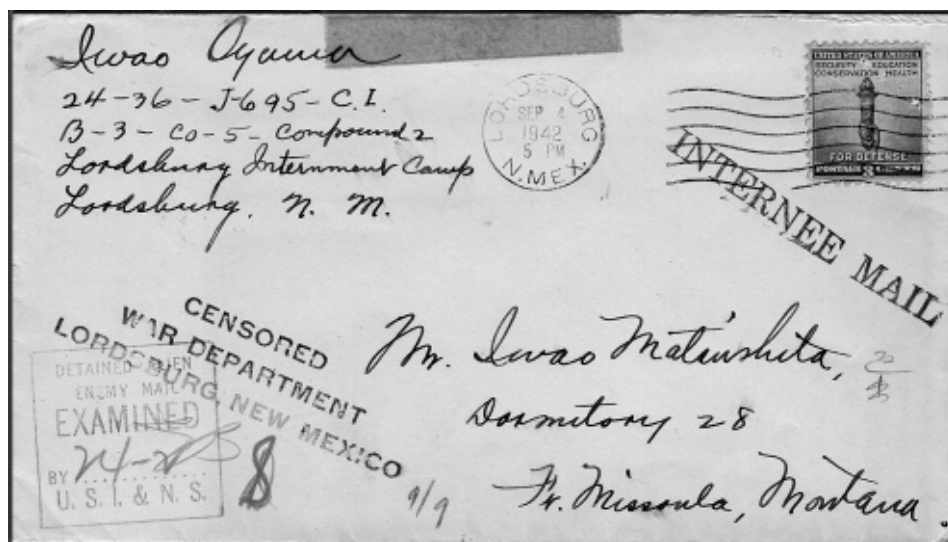 Iwao Oyama
24-36-J-695-C.I.
B-3-Co-5-Compound 2
Lordsburg Internment Camp
Lordsburg. N. M.
LORDSBURG
SEP 4
1942
5 PM
N.MEX.
UNITED STATES OF AMERICA
SECURITY EDUCATION
CONSERVATION HEALTH
FOR DEFENSE
3
INTERNEE MAIL
CENSORED
WAR DEPARTMENT
LORDSBURG, NEW MEXICO
DETAINED ALIEN
ENEMY MAIL
EXAMINED
BY
U. S. I. & N. S.
8
9/9
Mr. Iwao Matsushita,
Dormitory 28
Ft. Missoula, Montana.